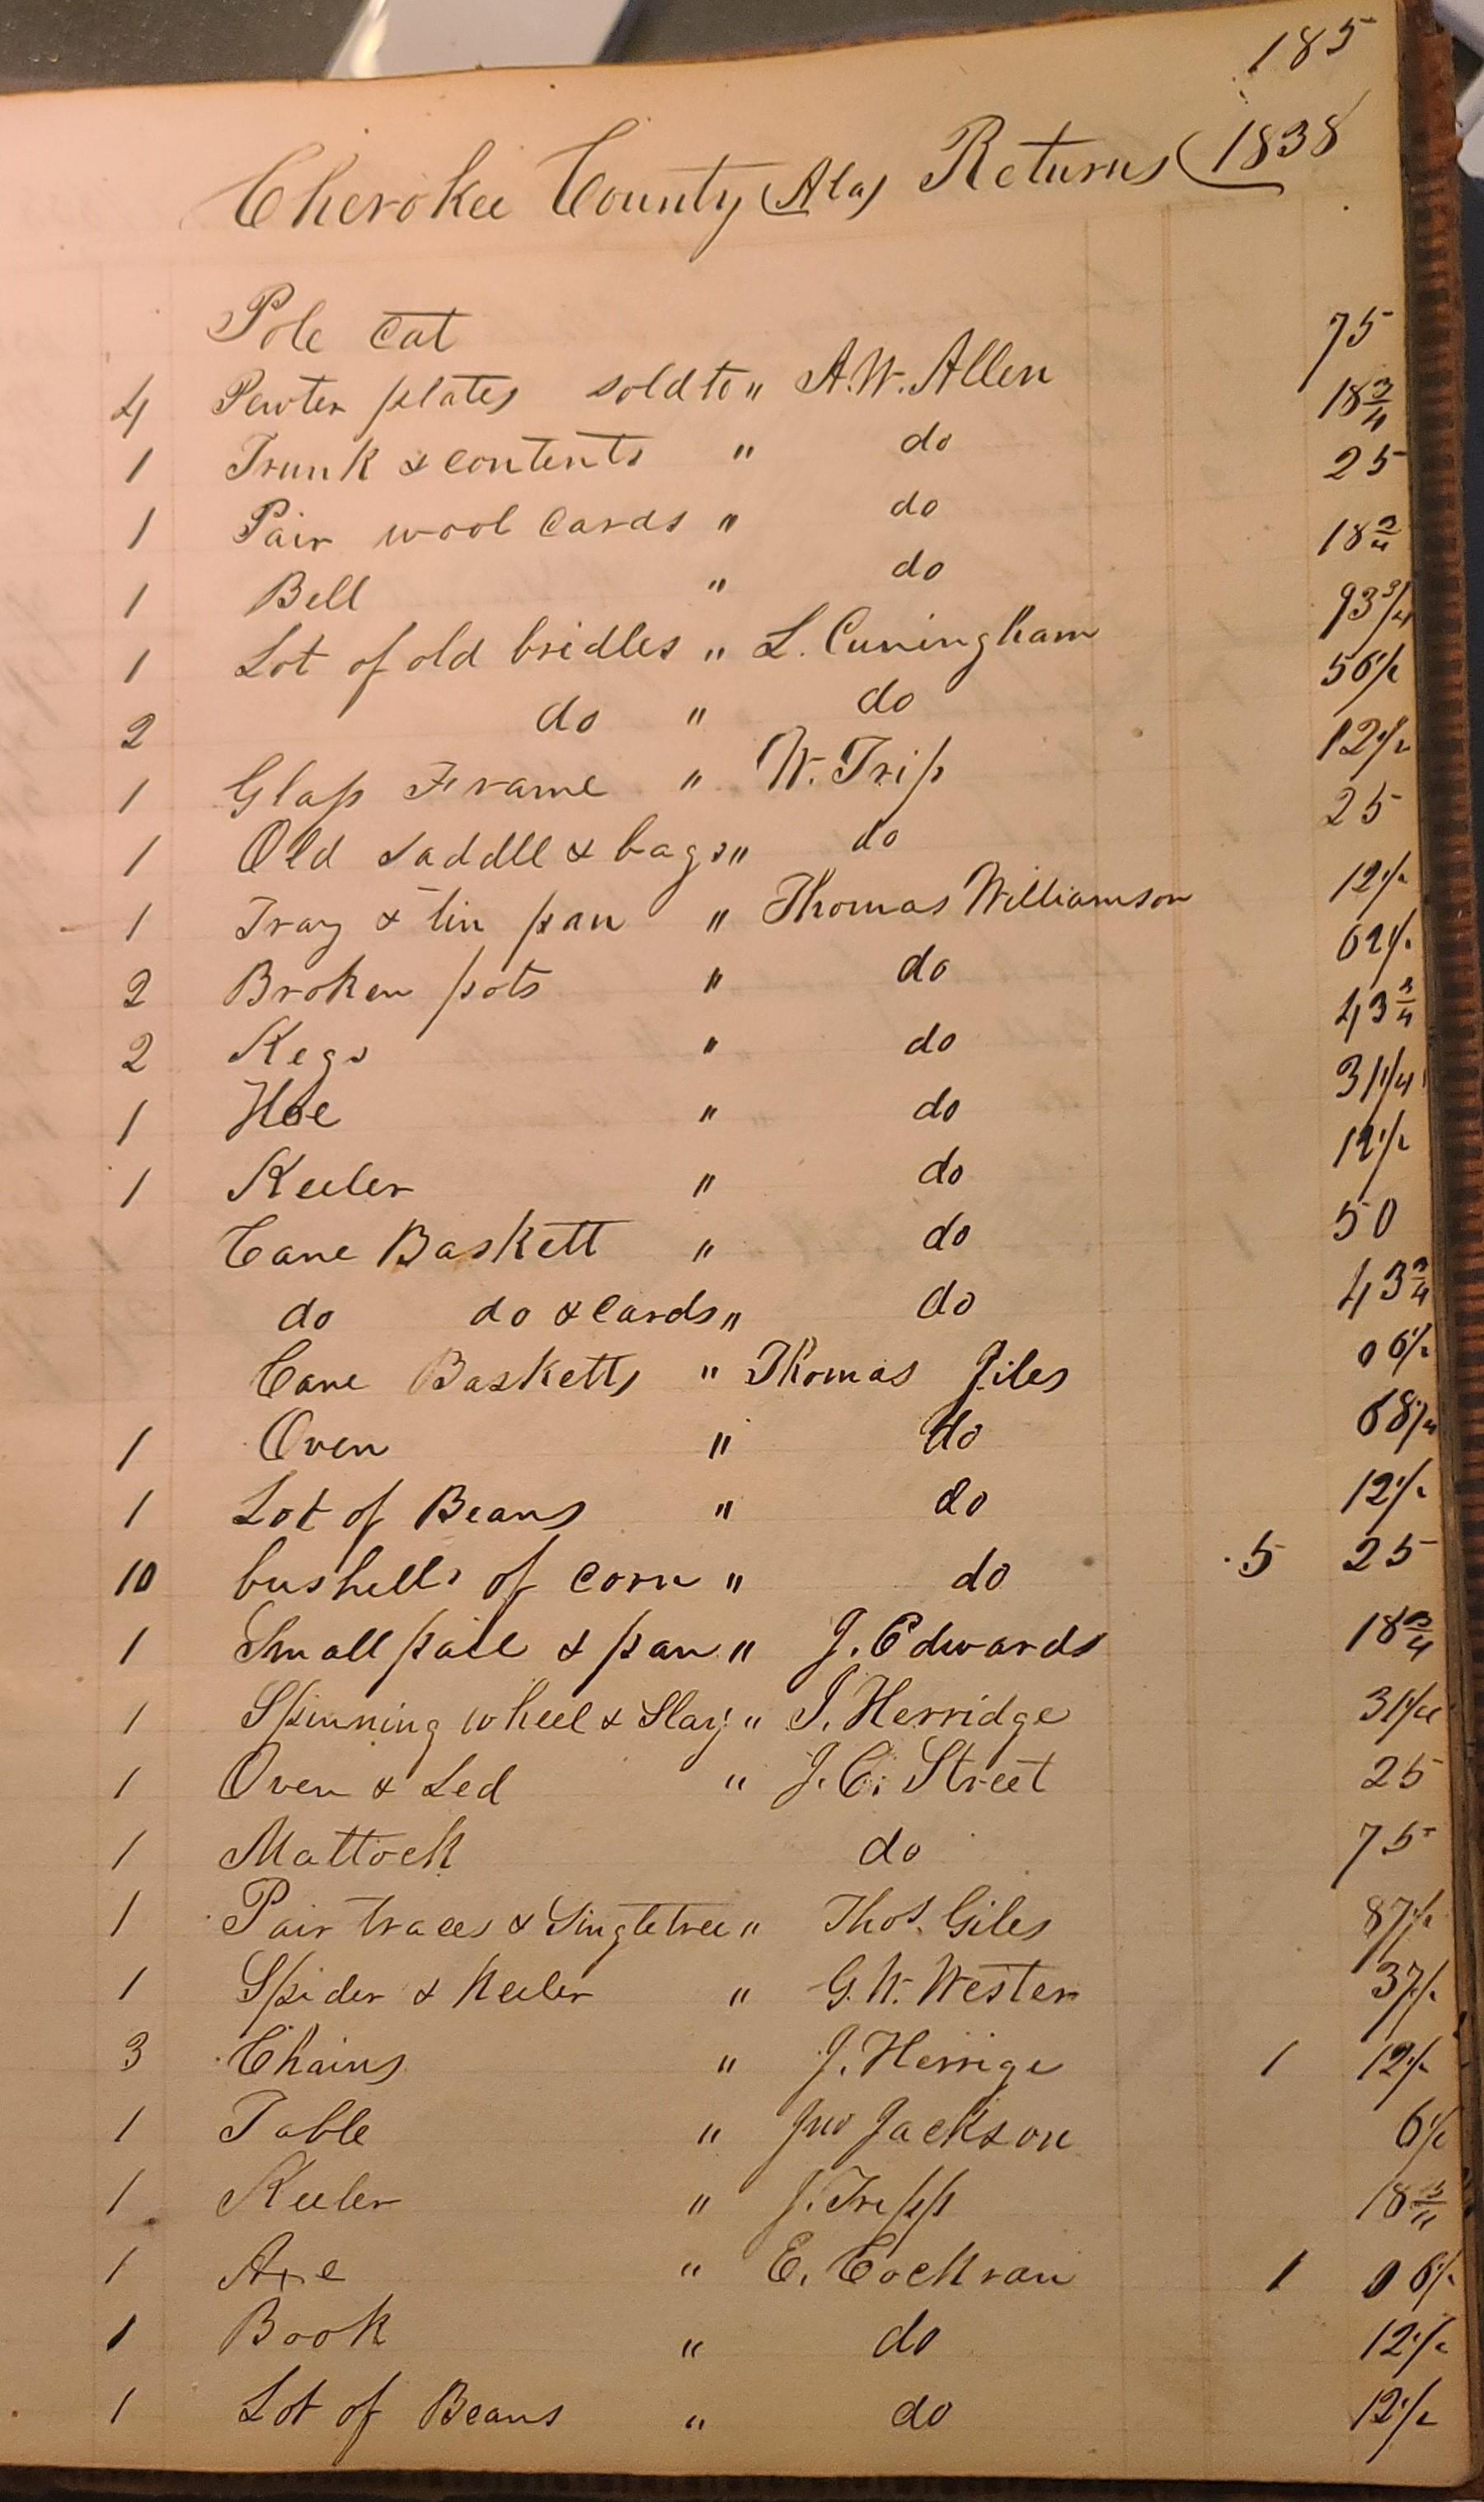 185
Cherokee County (Ala) Returns (1838
Pole Cat
4 Pewter plates sold to " A.W. Allen 75
1 Trunk & contents " do 18 3/4
1 Pair wool Cards " do 25
1 Bell " do 18 3/4
1 Lot of old bridles " L. Cuningham 93 3/4
2 do " do 56 1/2
1 Glass Frame " W. Trip 12 1/2
1 Old Saddle & bags " do 25
1 Tray & tin pan " Thomas Williamson 12 1/2
2 Broken pots " do 62 1/2
2 Kegs " do 43 3/4
1 Hoe " do 31 1/4
1 Keeler " do 12 1/2
Cane Baskett " do 50
do do & Cards " do 43 3/4
Cane Basketts " Thomas Giles 06 1/2
1 Oven " do 68 3/4
1 Lot of Beans " do 12 1/2
10 bushells of corn " do 5 25
1 Small pail & pan " J. Edwards 18 3/4
1 Spinning wheel & Slay " J. Herridge 31 1/4
1 Oven & Led " J. C. Street 25
1 Mattock do 75
1 Pair traces & Singletree " Thos. Giles 87 1/2
1 Spider & Keeler " G. W. Wester 37 1/2
3 Chains " J. Herrige 1 12 1/2
1 Table " Jno Jackson 6 1/2
1 Keeler " J. Tripp 18 3/4
1 Axe " E. Cockran 1 06 1/2
1 Book " do 12 1/2
1 Lot of Beans " do 12 1/2